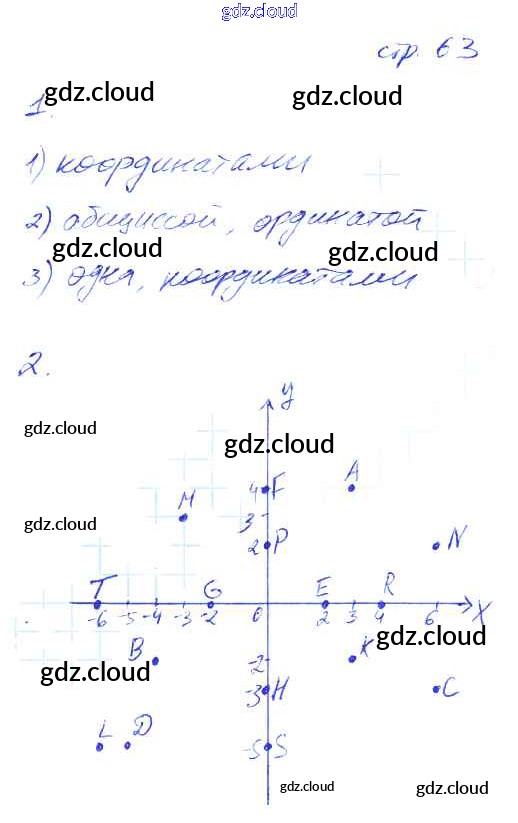 gdz.cloud
стр. 63
gdz.cloud
gdz.cloud
1.
1) координатами
2) абициссой, ординатой
gdz.cloud
gdz.cloud
3) одна, координатами
2.
y
gdz.cloud
gdz.cloud
4 F
A
M
3
gdz.cloud
2 P
N
T
G
E
R
-6 -5 -4 -3 -2 0 2 3 4 6 X
gdz.cloud
B
-2
K
gdz.cloud
-3 H
C
L D
-5 S
gdz.cloud
gdz.cloud